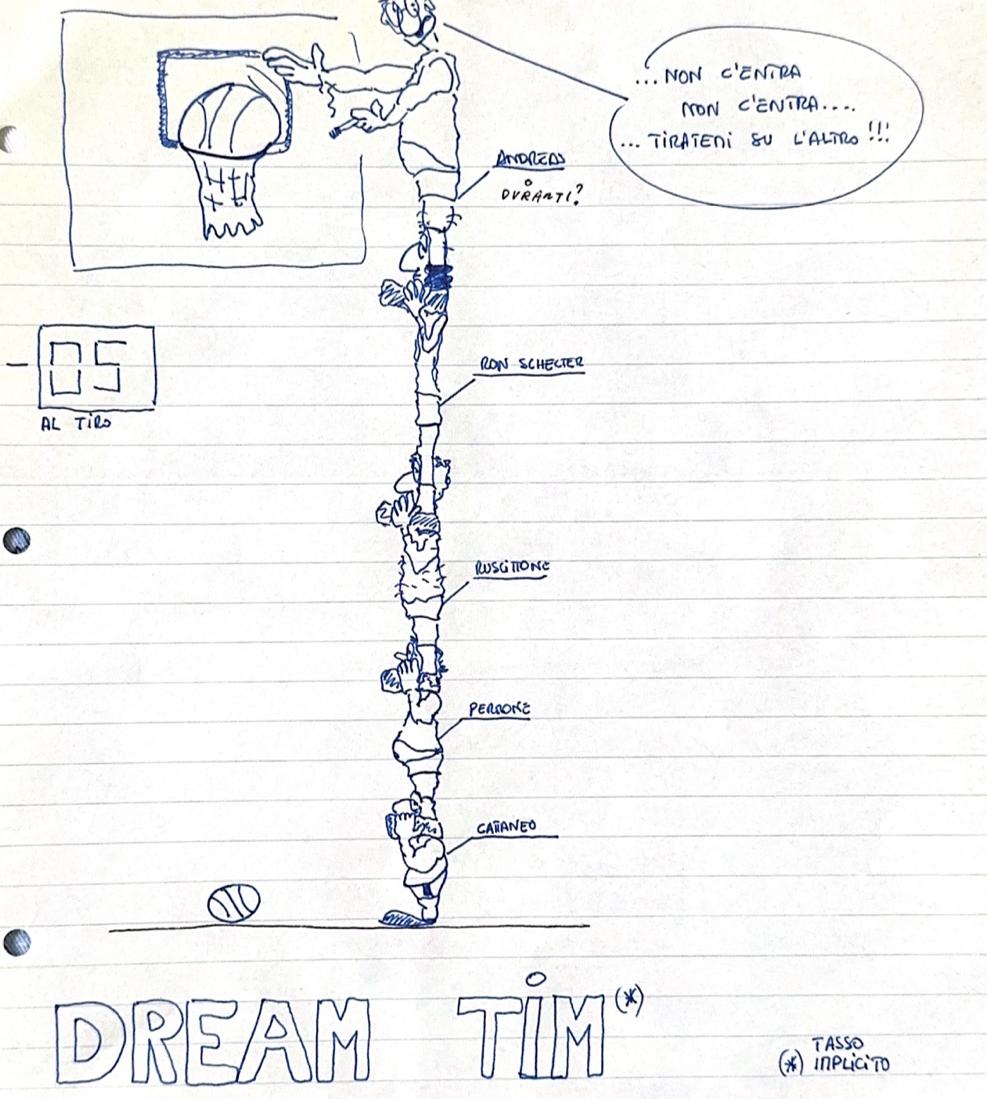 ...NON C'ENTRA
NON C'ENTRA....
...TIRATEMI SU L'ALTRO!!!
ANDREAS
O
DURANTI?
RON SCHECTER
- 05
AL TIRO
RUSCITTONE
PERRONE
CATTANEO
DREAM TIM(*)
TASSO
(*) IMPLICITO